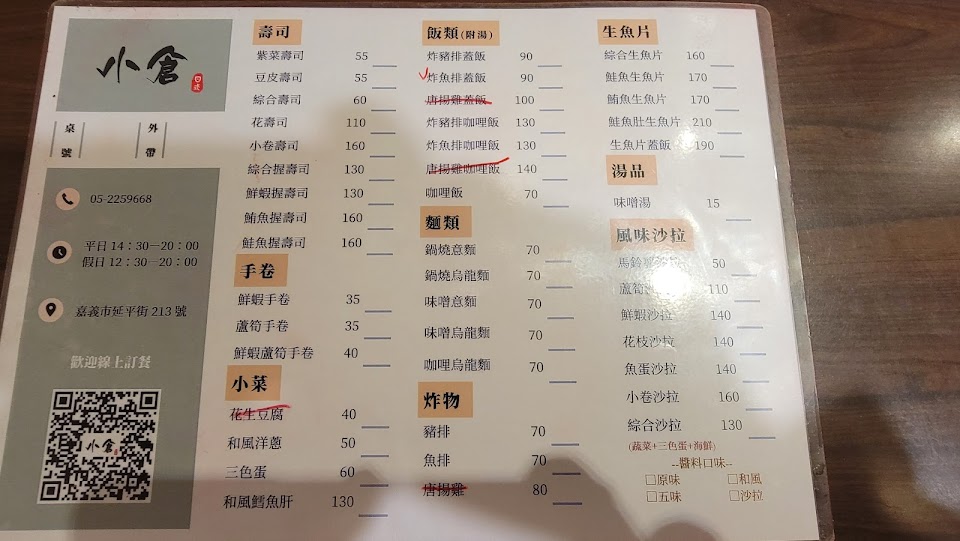 小倉
日式
桌號
外帶
05-2259668
平日 14：30－20：00
假日 12：30－20：00
嘉義市延平街 213 號
歡迎線上訂餐
小倉
壽司
紫菜壽司 55
豆皮壽司 55
綜合壽司 60
花壽司 110
小卷壽司 160
綜合握壽司 130
鮮蝦握壽司 130
鮪魚握壽司 160
鮭魚握壽司 160
手卷
鮮蝦手卷 35
蘆筍手卷 35
鮮蝦蘆筍手卷 40
小菜
花生豆腐 40
和風洋蔥 50
三色蛋 60
和風鱈魚肝 130
飯類(附湯)
炸豬排蓋飯 90
炸魚排蓋飯 90
唐揚雞蓋飯 100
炸豬排咖哩飯 130
炸魚排咖哩飯 130
唐揚雞咖哩飯 140
咖哩飯 70
麵類
鍋燒意麵 70
鍋燒烏龍麵 70
味噌意麵 70
味噌烏龍麵 70
咖哩烏龍麵 70
炸物
豬排 70
魚排 70
唐揚雞 80
生魚片
綜合生魚片 160
鮭魚生魚片 170
鮪魚生魚片 170
鮭魚肚生魚片 210
生魚片蓋飯 190
湯品
味噌湯 15
風味沙拉
馬鈴薯沙拉 50
蘆筍沙拉 110
鮮蝦沙拉 140
花枝沙拉 140
魚蛋沙拉 140
小卷沙拉 160
綜合沙拉 130
(蔬菜+三色蛋+海鮮)
--醬料口味--
□原味 □和風
□五味 □沙拉